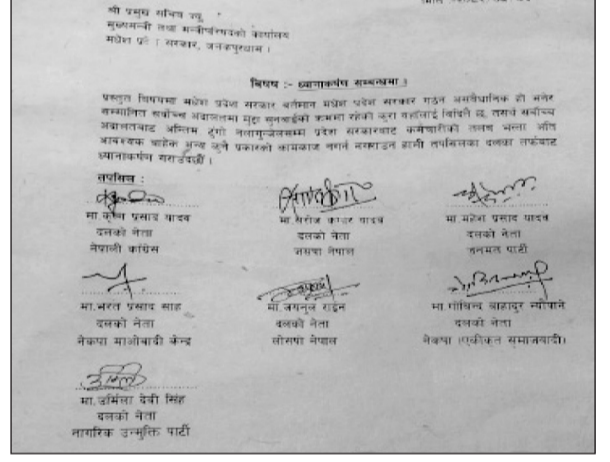 श्री प्रमुख सचिव ज्यू
मुख्यमन्त्री तथा मन्त्रीपरिषदको कार्यालय
मधेश प्रदेश सरकार, जनकपुरधाम ।
विषय :- ध्यानाकर्षण सम्बन्धमा ।
प्रस्तुत विषयमा मधेश प्रदेश सरकार वर्तमान मधेश प्रदेश सरकार गठन असंवैधानिक हो भनेर
सम्मानित सर्वोच्च अदालतमा मुद्दा सुनवाईको क्रममा रहेको कुरा यहाँलाई विदितै छ, तसर्थ सर्वोच्च
अदालतबाट अन्तिम टुंगो नलागुन्जेलसम्म प्रदेश सरकारबाट कर्मचारीको तलब भत्ता अति
आवश्यक बाहेक अन्य कुनै प्रकारको कामकाज नगर्न नगराउन हामी तपसिलका दलका तर्फबाट
ध्यानाकर्षण गराउँदछौं ।
तपसिल :
मा.कृष्ण प्रसाद यादव
दलको नेता
नेपाली कांग्रेस
मा.सरोज कुमार यादव
दलको नेता
जसपा नेपाल
मा.महेश प्रसाद यादव
दलको नेता
जनमत पार्टी
मा.भरत प्रसाद साह
दलको नेता
नेकपा माओवादी केन्द्र
मा.जयनुल राईन
दलको नेता
लोसपा नेपाल
मा.गोविन्द बाहादुर न्यौपाने
दलको नेता
नेकपा (एकीकृत समाजवादी)
उर्मिला
मा.उर्मिला देवी सिंह
दलको नेता
नागरिक उन्मुक्ति पार्टी